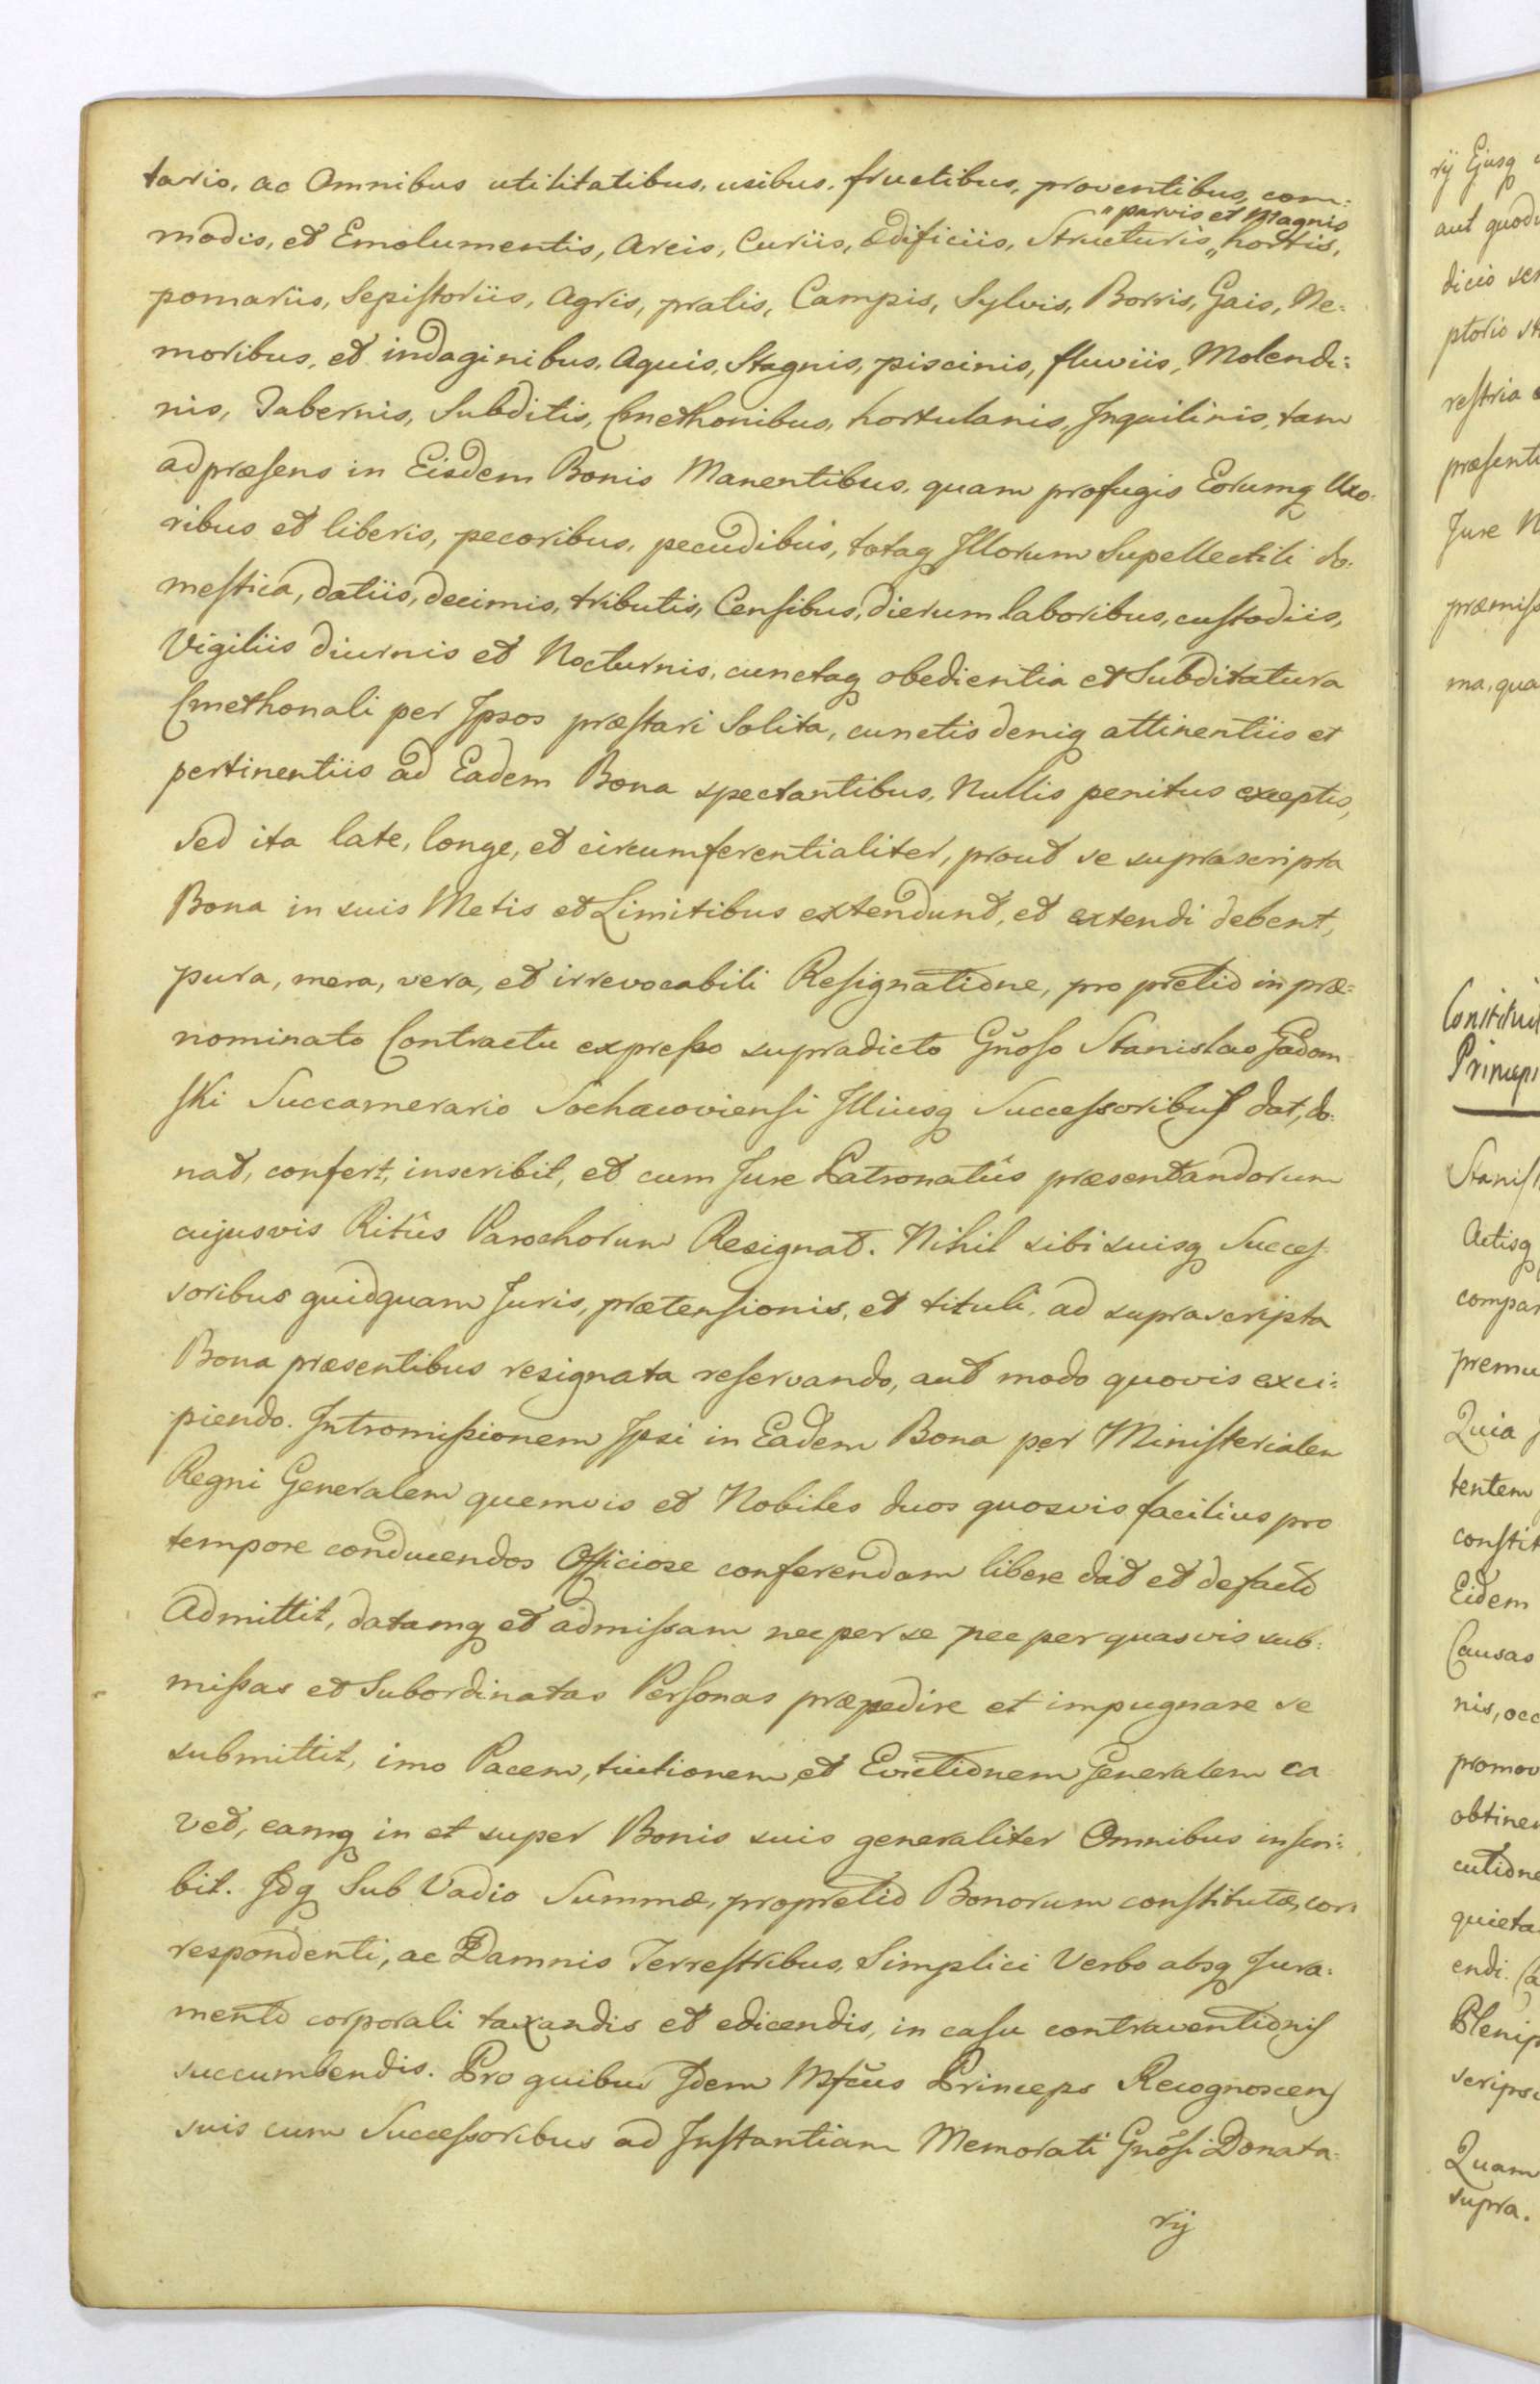 tario, ac Omnibus utilitatibus, usibus, fructibus, proventibus, com:
" parvis et Magnis
modis, et Emolumentis, Areis, Curiis, Ædificiis, Structuris „ hortis,
pomariis, Sepistoriis, Agris, pratis, Campis, Sylvis, Borris, Gais, Ne:
moribus, et indaginibus, Aquis, Stagnis, piscinis, fluviis, Molendi:
nis, Tabernis, Subditis, Cmethonibus, hortulanis, Inquilinis, tam
ad præsens in Eisdem Bonis Manentibus, quam profugis Eorumq Uxo:
ribus et liberis, pecoribus, pecudibus, totaq Illorum Supellectili do:
mestica, datiis, decimis, tributis, Censibus, dierum laboribus, custodiis,
Vigiliis diurnis et Nocturnis, cunctaq obedientia et Subditatura
Cmethonali per Ipsos præstari Solita, cunctis deniq attinentiis et
pertinentiis ad Eadem Bona spectantibus, Nullis penitus exceptis,
sed ita late, longe, et circumferentialiter, prout se suprascripta
Bona in suis Metis et Limitibus extendunt, et extendi debent,
pura, mera, vera, et irrevocabili Resignatione, pro pretio in præ:
nominato Contractu expresso supradicto Gnoso Stanislao Gadom
ski Succamerario Sochacoviensi Illiusq Successoribus dat, do:
nat, confert, inscribit, et cum Jure Patronatûs præsentandorum
cujusvis Ritûs Parochorum Resignat. Nihil sibi suisq Succes
soribus quidquam Juris, prætensionis, et tituli, ad suprascripta
Bona præsentibus resignata reservando, aut modo quovis exci:
piendo. Intromissionem Ipsi in Eadem Bona per Ministerialem
Regni Generalem quemvis et Nobiles duos quosvis facilius pro
tempore conducendos Officiose conferendam libere dat et de facto
Admittit, datamq et admissam nec per se nec per quasvis sub:
missas et Subordinatas Personas præpedire et impugnare se
submittit, imo Pacem, tuitionem, et Evictionem Generalem ca
vet, eamq in et super Bonis suis generaliter Omnibus inscri:
bit. Idq Sub Vadio Summæ, pro pretio Bonorum constitutæ, cor:
respondenti, ac Damnis Terrestribus, Simplici Verbo absq Jura:
mento corporali taxandis et edicendis, in casu contraventionis
succumbendis. Pro quibus Idem Mfcus Princeps Recognoscens
suis cum Successoribus ad Instantiam Memorati Gnosi Donata:
rij
rij Ejusq
aut quod
dicio
ptorio
restria
præsent
Jure N
præmiss
ma, qua
Constitui
Princip
Stanis
Actisq
compar
premu
Quia
tentem
constit
Eidem
Causas
nis, occ
promov
obtinen
cutione
quieta
endi. Ca
Plenip
scripso
Quam
supra.